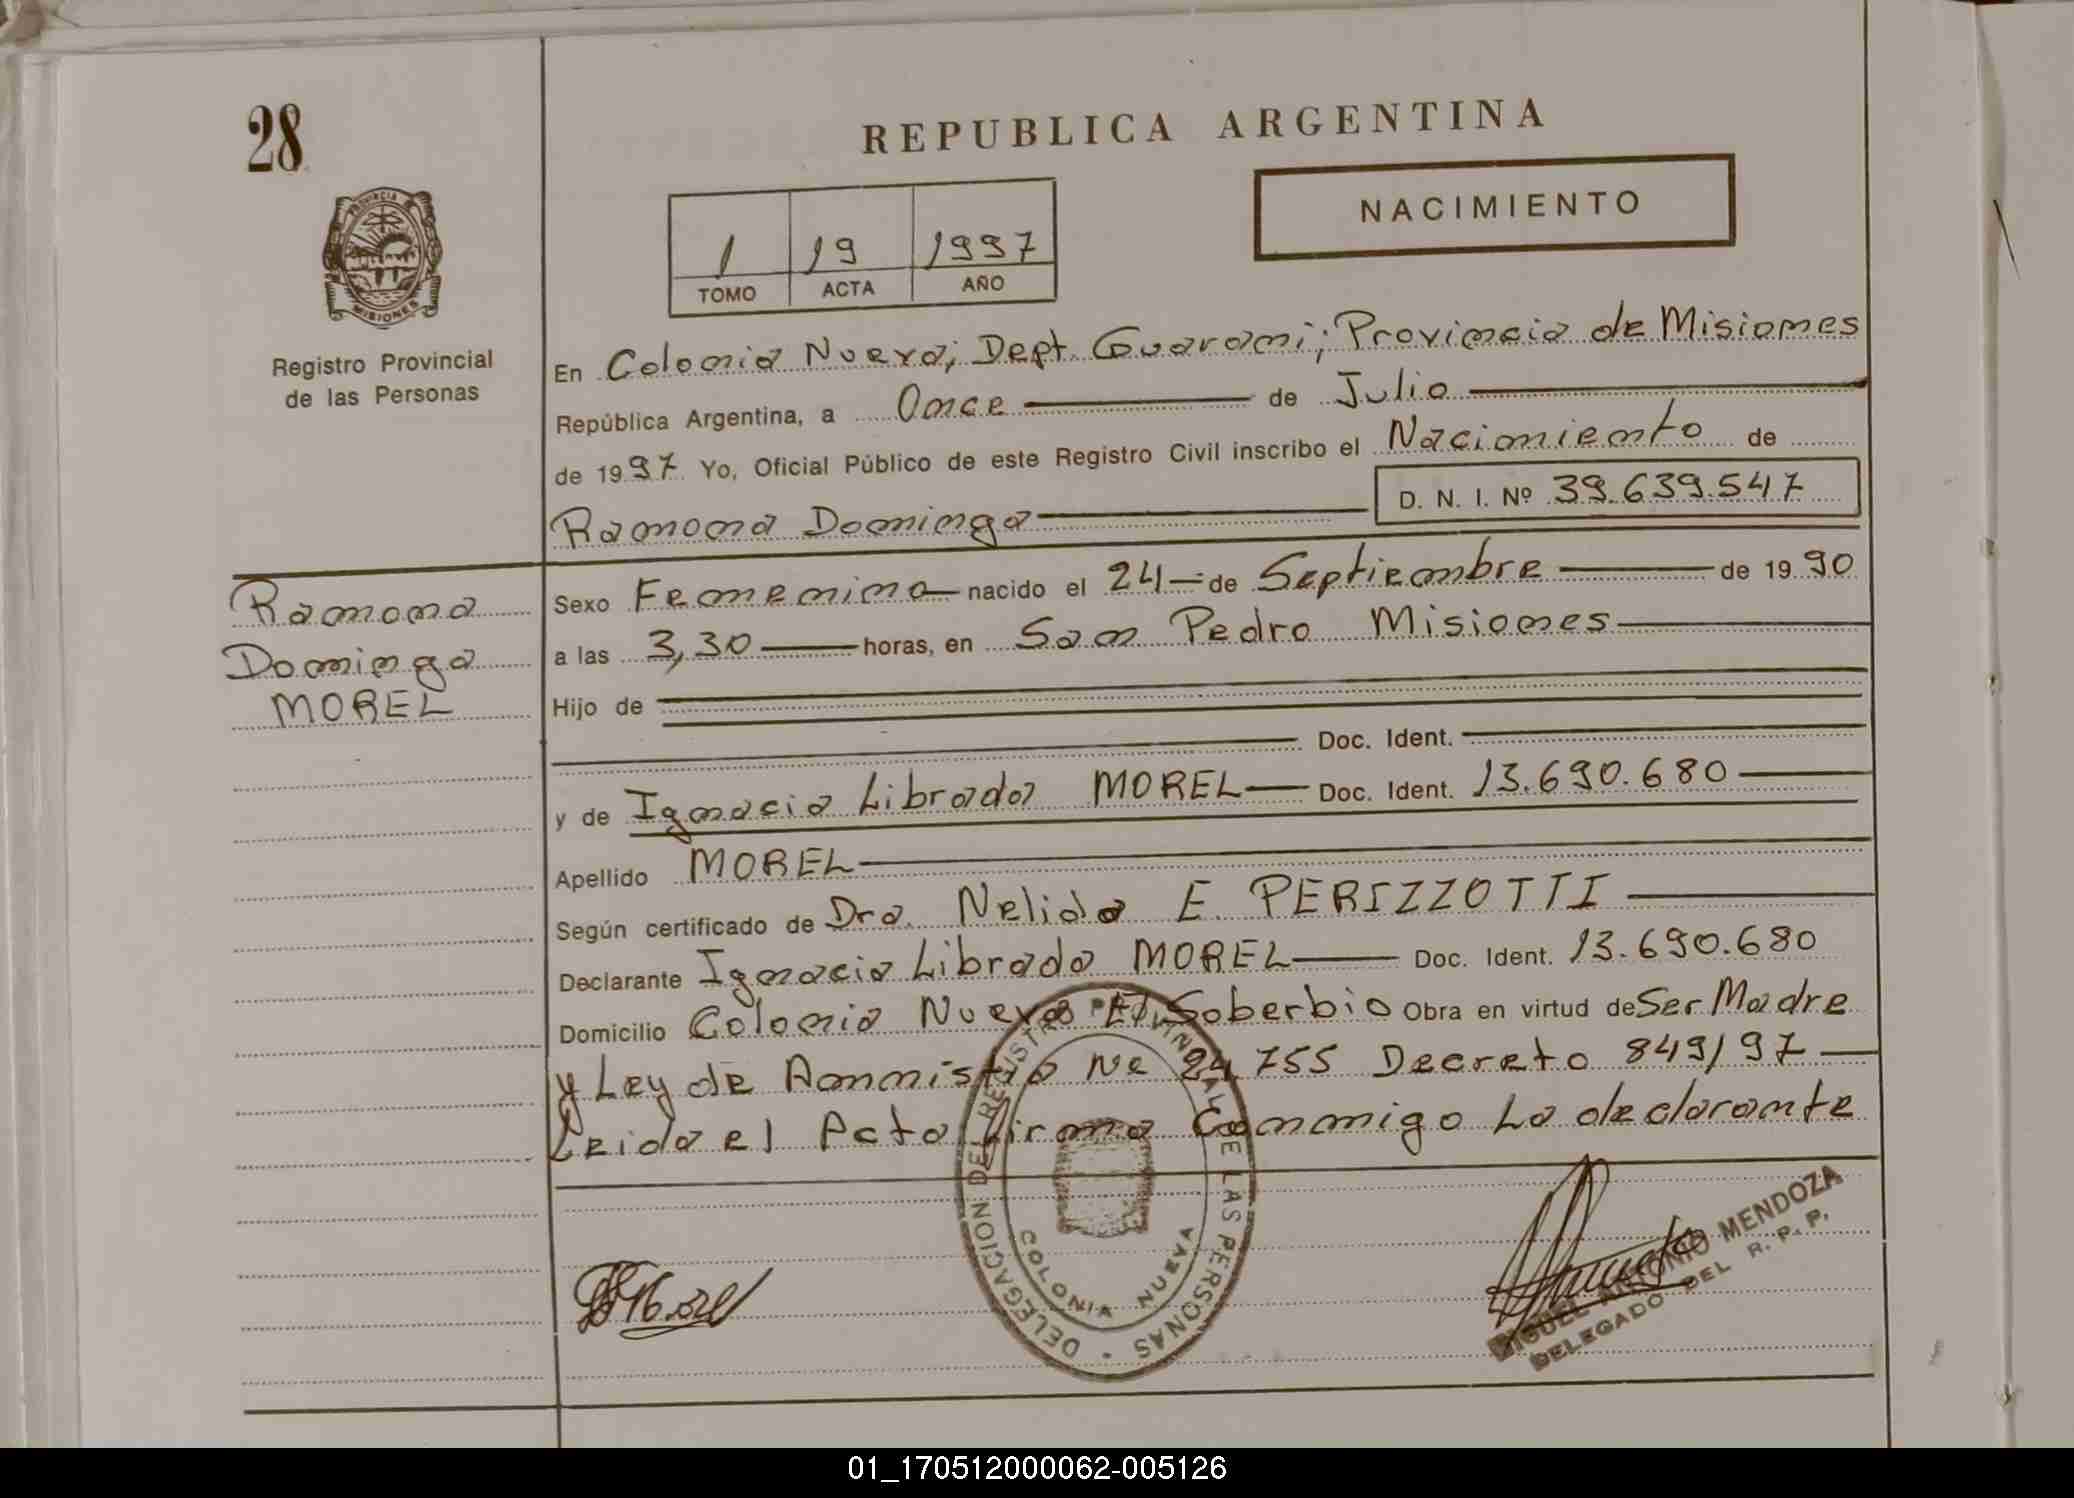 28
REPUBLICA ARGENTINA
NACIMIENTO
1 19 1997
TOMO ACTA AÑO
PROVINCIA DE
MISIONES
Registro Provincial
de las Personas
En Colonia Nueva; Dept. Guarani; Provincia de Misiones
República Argentina, a Once de Julio
de 1997 Yo, Oficial Público de este Registro Civil inscribo el Nacimiento de
Ramona Dominga D. N. I. Nº 39.639.547
Ramona
Dominga
MOREL
Sexo Femenino nacido el 24 de Septiembre de 1990
a las 3,30 horas, en San Pedro Misiones
Hijo de
Doc. Ident.
y de Ignacia Librada MOREL Doc. Ident. 13.690.680
Apellido MOREL
Según certificado de Dra. Nelida E. PERIZZOTTI
Declarante Ignacia Librada MOREL Doc. Ident. 13.690.680
Domicilio Colonia Nueva El Soberbio Obra en virtud de Ser Madre
y Ley de Amnistia Ne 24.755 Decreto 849/97
Leida el Acta Firma Conmigo La declarante
DELEGACION DEL REGISTRO PROVINCIAL DE LAS PERSONAS
COLONIA NUEVA
Morel
MIGUEL ANTONIO MENDOZA
DELEGADO DEL R. P. P.
01_170512000062-005126